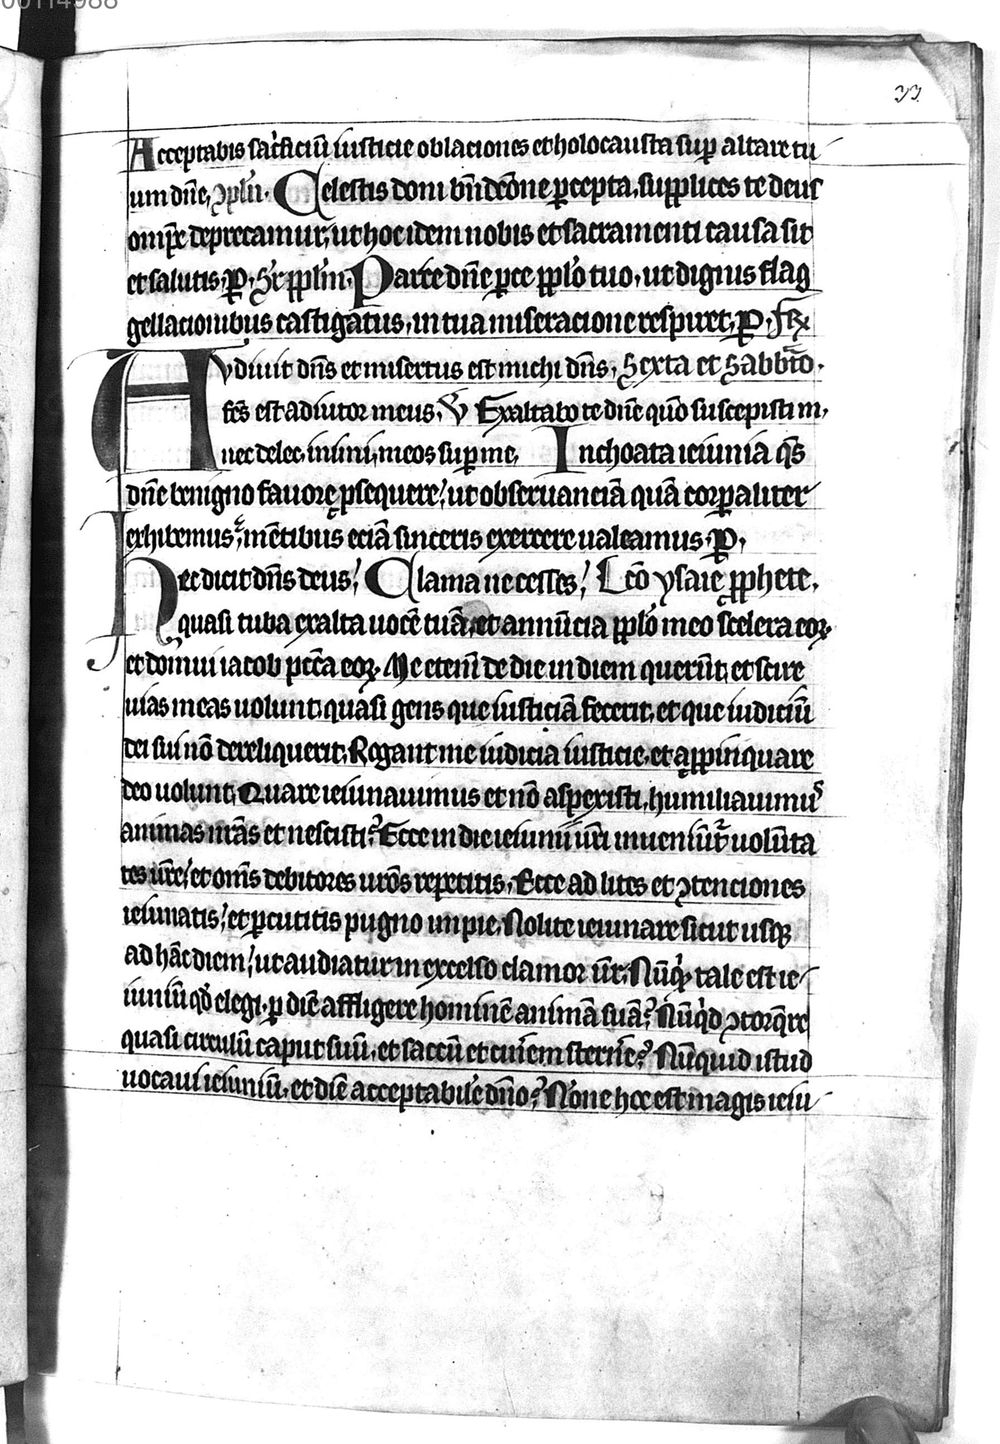 00114988
33
Acceptabis sac͛ficiū iusticie oblaciones et holocausta suꝑ altare tu
um dn̄e, ꝯpln̄. Celestis doni bn̄dcōne ꝑcepta, supplices te deus
omp̄s deprecamur, ut hoc idem nobis et sacramenti causa sit
et salutis. P. Sr̄ pplm̄. Parce dn̄e ꝑce pplō tuo, ut dignis flag
gellacionibus castigatus, in tua miseracione respiret, P.
Avdiuit dn̄s et misertus est michi dn̄s, Sexta et Sabbt̄o.
est adiutor meus, V Exaltabo te dn̄e qm̄o suscepisti m,
nec delec. inimi. meos suꝑ me, Inchoata ieiunia qs̄
dn̄e benigno fauore ꝓsequere, ut obseruanciā quā corꝑaliter
exhibemus, mentibus eciā sinceris exercere ualeamus P.
Hec dicit dn̄s deus, Clama ne cesses, Lcō ysaie ꝓphete.
quasi tuba exalta uocē tuā, et annūcia pplō meo scelera eoꝝ
et domui iacob pcc̄a eoꝝ. Me etenī de die in diem querūt, et scire
uias meas uolunt, quasi gens que iusticiā fecerit, et que iudiciū
dei sui nō dereliquerit, Rogant me iudicia iusticie, et appinquare
deo uolunt, Quare ieiunauimus et nō aspexisti, humiliauimus
animas nr̄as et nescisti? Ecce in die ieiunii ur̄i inueniūt͛ uolūta
tes ur̄e, et om̄s debitores ur̄os repetitis, Ecce ad lites et ꝯtenciones
ieiunatis, et ꝑcutitis pugno impie, Nolite ieiunare sicut usqꝫ
ad hāc diem, ut audiatur in excelso clamor ur̄, Nūqͥ tale est ie
iuniū qd̄ elegi, ꝑ diē affligere hominē animā suā? Nūqͥd ꝯtorqre
quasi circulū caput suū, et saccū et cinem sterne? Nūquid istud
uocaui ieiuniū, et diē acceptabile dn̄o? Nōne hoc est magis ieiu